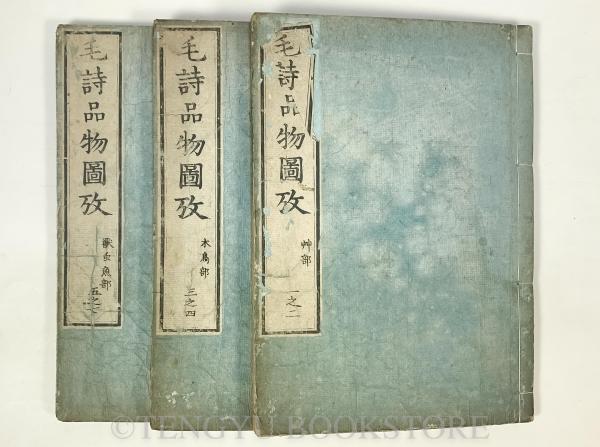 毛詩品物圖攷
艸部
一之二
毛詩品物圖攷
木鳥部
三之四
毛詩品物圖攷
獸虫魚部
五之
©TENGYU BOOKSTORE